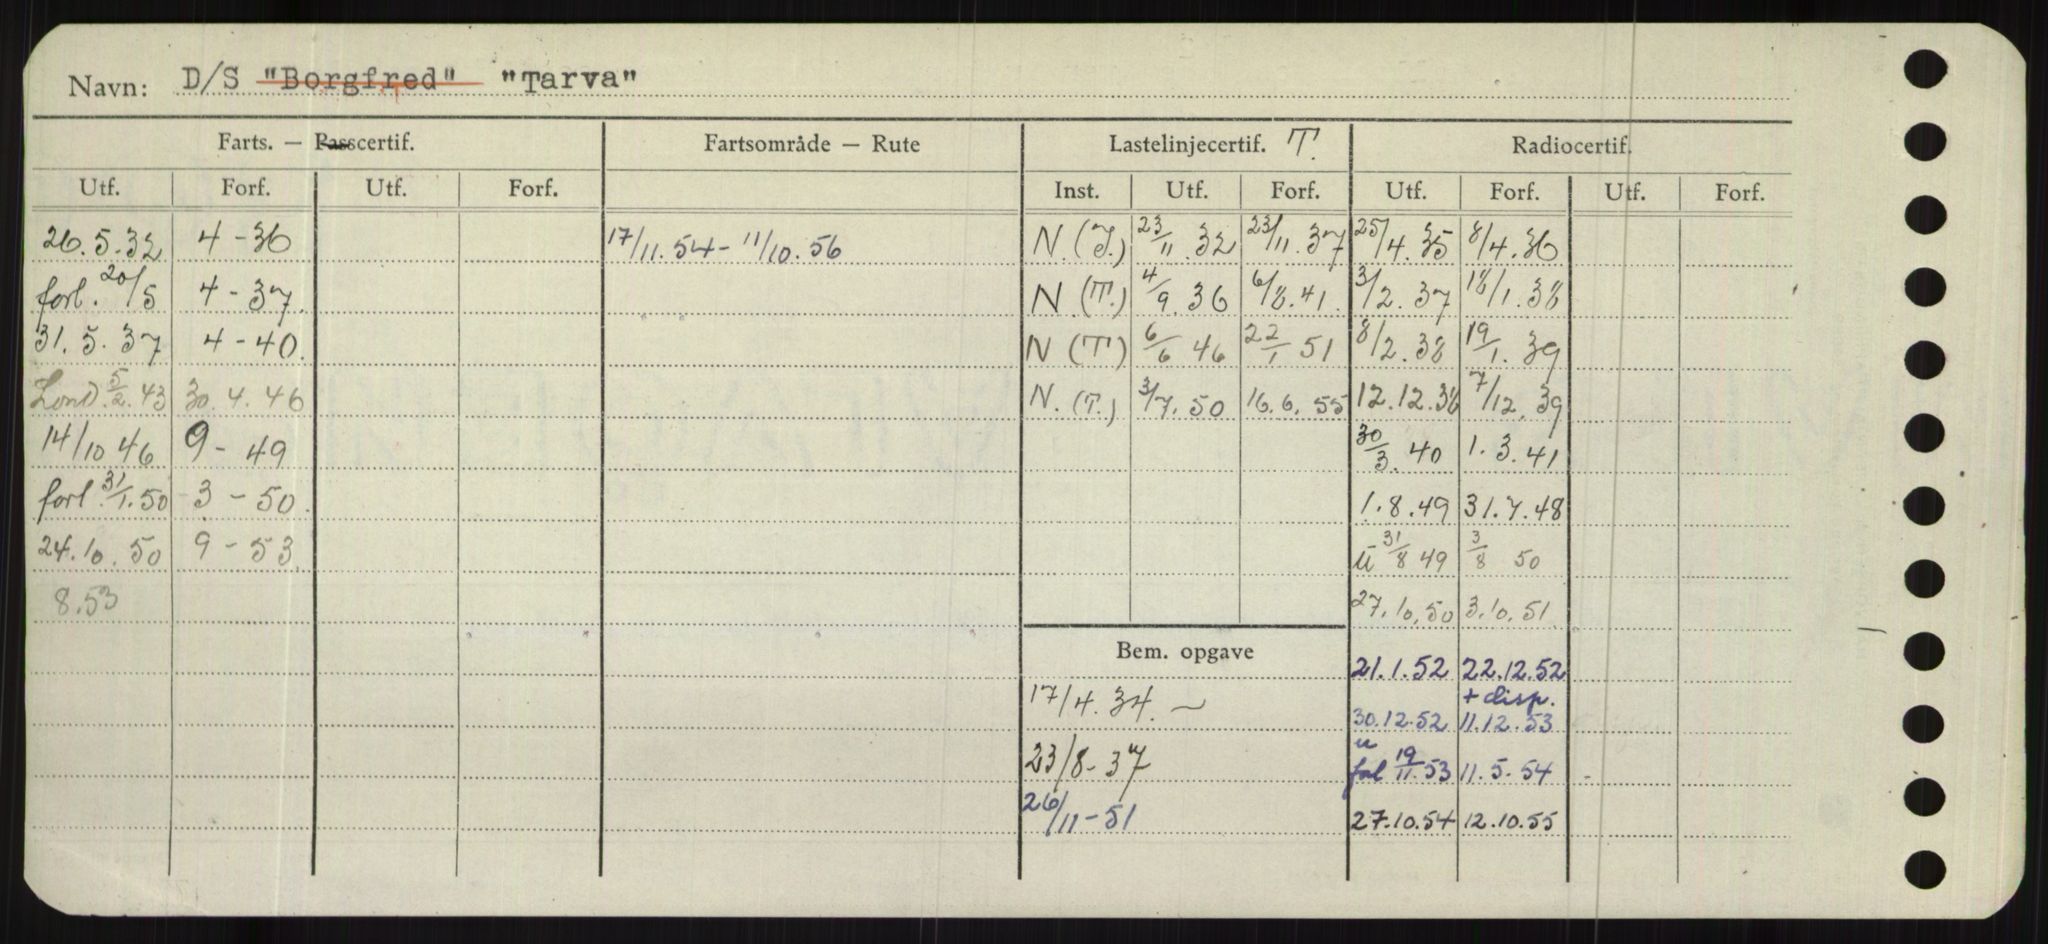 Navn: D/S "Borgfred" "Tarva"
Farts. — Passcertif. Fartsområde — Rute Lastelinjecertif. T. Radiocertif.
Utf. Forf. Utf. Forf. Inst. Utf. Forf. Utf. Forf. Utf. Forf.
26.5.32 4-36 17/11.54-11/10.56 N.(T.) 23/11.32 23/11.37 25/4.35 8/4.36
forl. 20/5 4-37. N (T.) 4/9.36 6/8.41. 3/2.37 18/1.38
31.5.37 4-40. N (T) 6/6 46 22/1 51 8/2.38 19/1.39
Lond. 5/2.43 30.4.46 N. (T.) 3/7.50 16.6.55 12.12.38 7/12.39
14/10 46 9-49 30/3.40 1.3.41
forl. 31/1.50 3-50. 1.8.49 31.7.48
24.10.50 9-53. u 31/8 49 3/8 50
8.53 27.10.50 3.10.51.
Bem. opgave 21.1.52 22.12.52
17/4.34. ~ + disp.
30.12.52 11.12.53
23/8-37 u
19/11.53 11.5.54
26/11-51 27.10.54 12.10.55